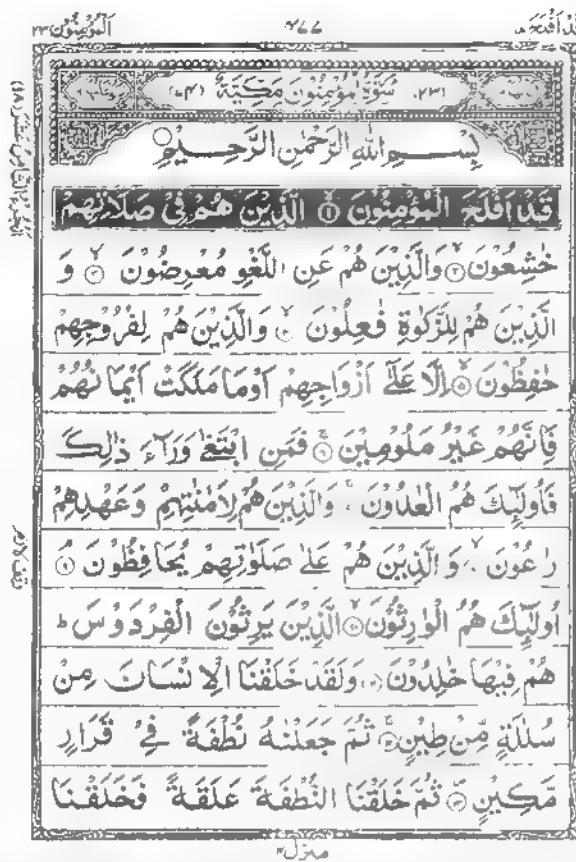 قَدْ اَفْلَحَ ١٨ ٤٧٧ اَلْمُؤْمِنُوْنَ ٢٣
(٢٣) سُوْرَةُ الْمُؤْمِنُوْنَ مَكِّيَّةٌ (٧٤)
بِسْمِ اللهِ الرَّحْمٰنِ الرَّحِيْمِ
قَدْ اَفْلَحَ الْمُؤْمِنُوْنَ ۙ۱ الَّذِيْنَ هُمْ فِيْ صَلَاتِهِمْ
خٰشِعُوْنَ ۙ۲ وَالَّذِيْنَ هُمْ عَنِ اللَّغْوِ مُعْرِضُوْنَ ۙ۳ وَ
الَّذِيْنَ هُمْ لِلزَّكٰوةِ فٰعِلُوْنَ ۙ۴ وَالَّذِيْنَ هُمْ لِفُرُوْجِهِمْ
حٰفِظُوْنَ ۙ۵ اِلَّا عَلٰٓى اَزْوَاجِهِمْ اَوْمَا مَلَكَتْ اَيْمَانُهُمْ
فَاِنَّهُمْ غَيْرُ مَلُوْمِيْنَ ۚ۶ فَمَنِ ابْتَغٰى وَرَآءَ ذٰلِكَ
فَاُولٰٓئِكَ هُمُ الْعٰدُوْنَ ۚ وَالَّذِيْنَ هُمْ لِاَمٰنٰتِهِمْ وَعَهْدِهِمْ
رٰعُوْنَ ۙ وَالَّذِيْنَ هُمْ عَلٰى صَلَوٰتِهِمْ يُحَافِظُوْنَ ۘ۹
اُولٰٓئِكَ هُمُ الْوٰرِثُوْنَ ۙ۱۰ الَّذِيْنَ يَرِثُوْنَ الْفِرْدَوْسَ ؕ
هُمْ فِيْهَا خٰلِدُوْنَ ۱۱ وَلَقَدْ خَلَقْنَا الْاِنْسَانَ مِنْ
سُلٰلَةٍ مِّنْ طِيْنٍ ۚ۱۲ ثُمَّ جَعَلْنٰهُ نُطْفَةً فِيْ قَرَارٍ
مَّكِيْنٍ ۪۱۳ ثُمَّ خَلَقْنَا النُّطْفَةَ عَلَقَةً فَخَلَقْنَا
منزل ٤